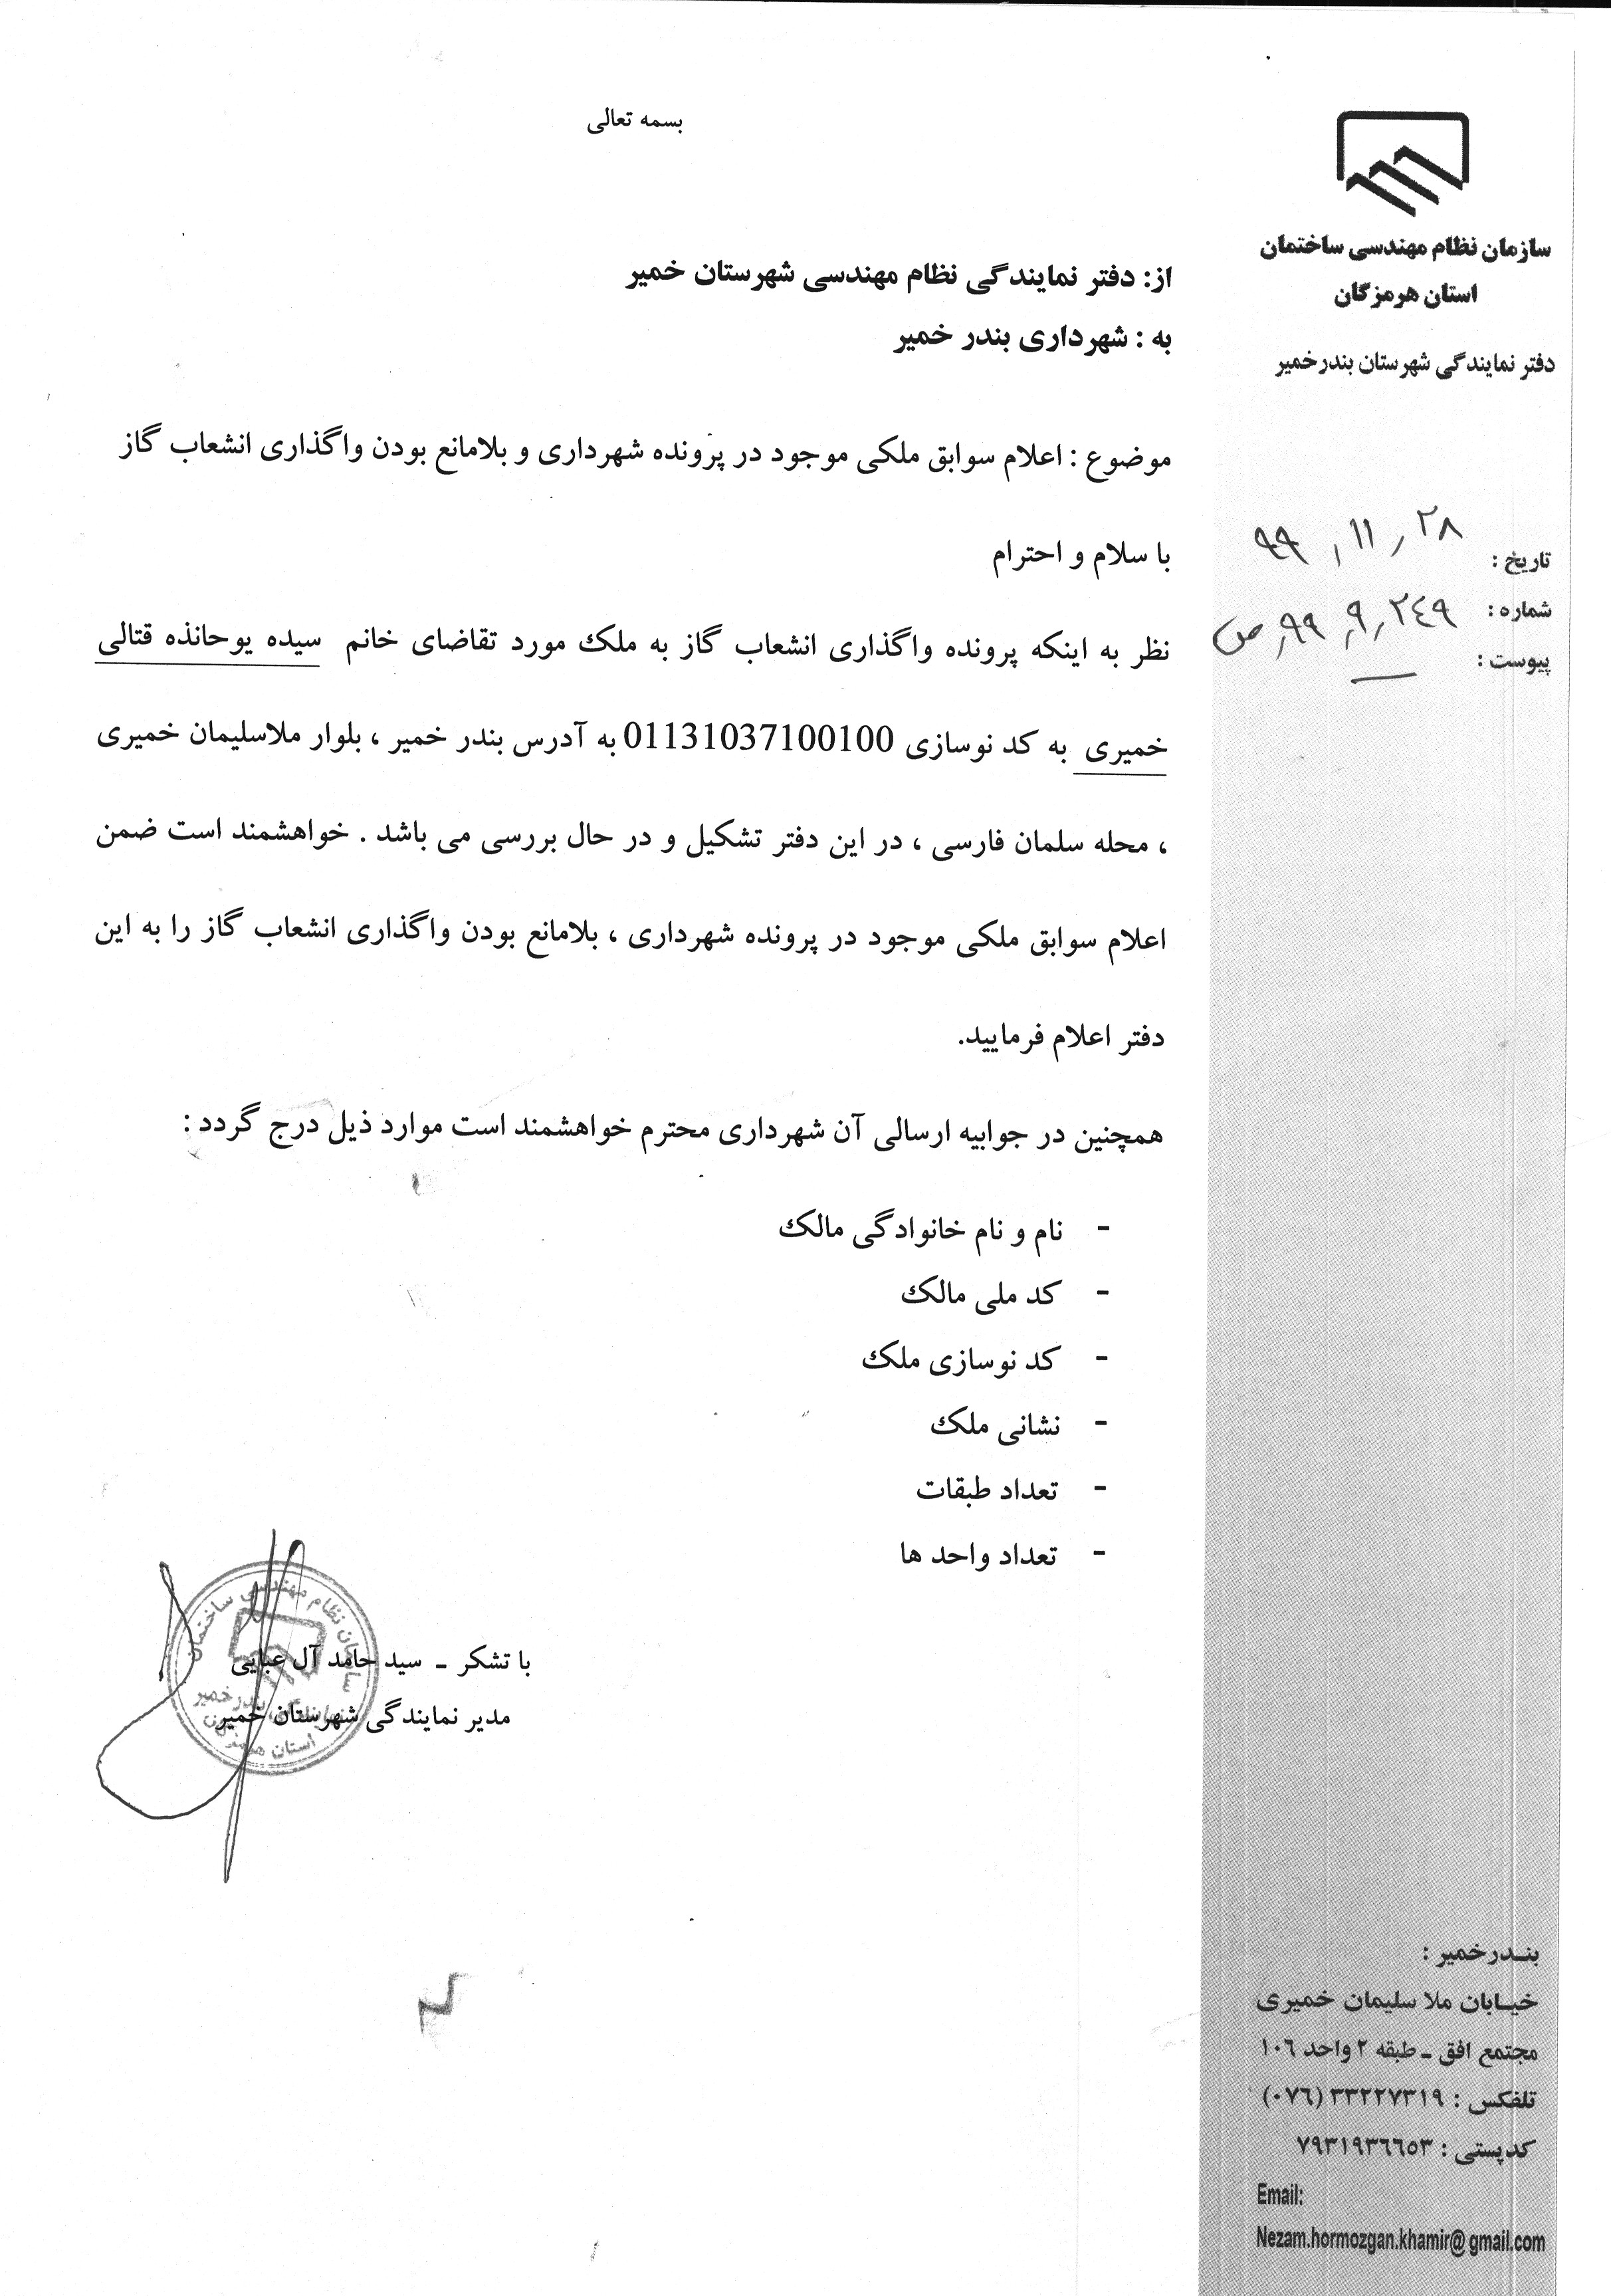 بسمه تعالی
سازمان نظام مهندسی ساختمان
استان هرمزگان
دفتر نمایندگی شهرستان بندرخمیر
تاریخ : ۹۹٫۱۱٫۲۸
شماره : ۲۴۹٫۹٫۹۹٫ص
پیوست : —
از: دفتر نمایندگی نظام مهندسی شهرستان خمیر
به : شهرداری بندر خمیر
موضوع : اعلام سوابق ملکی موجود در پرونده شهرداری و بلامانع بودن واگذاری انشعاب گاز
با سلام و احترام
نظر به اینکه پرونده واگذاری انشعاب گاز به ملک مورد تقاضای خانم سیده یوحانذه قتالی
خمیری به کد نوسازی 01131037100100 به آدرس بندر خمیر ، بلوار ملاسلیمان خمیری
، محله سلمان فارسی ، در این دفتر تشکیل و در حال بررسی می باشد . خواهشمند است ضمن
اعلام سوابق ملکی موجود در پرونده شهرداری ، بلامانع بودن واگذاری انشعاب گاز را به این
دفتر اعلام فرمایید.
همچنین در جوابیه ارسالی آن شهرداری محترم خواهشمند است موارد ذیل درج گردد :
- نام و نام خانوادگی مالک
- کد ملی مالک
- کد نوسازی ملک
- نشانی ملک
- تعداد طبقات
- تعداد واحد ها
با تشکر - سید حامد آل عبایی
مدیر نمایندگی شهرستان خمیر
سازمان نظام مهندسی ساختمان
بندرخمیر
استان هرمزگان
بندرخمیر :
خیابان ملا سلیمان خمیری
مجتمع افق - طبقه ۲ واحد ۱۰۶
تلفکس : ۳۳۲۲۷۳۱۹ (۰۷۶)
کدپستی : ۷۹۳۱۹۳۶۶۵۳
Email:
Nezam.hormozgan.khamir@gmail.com